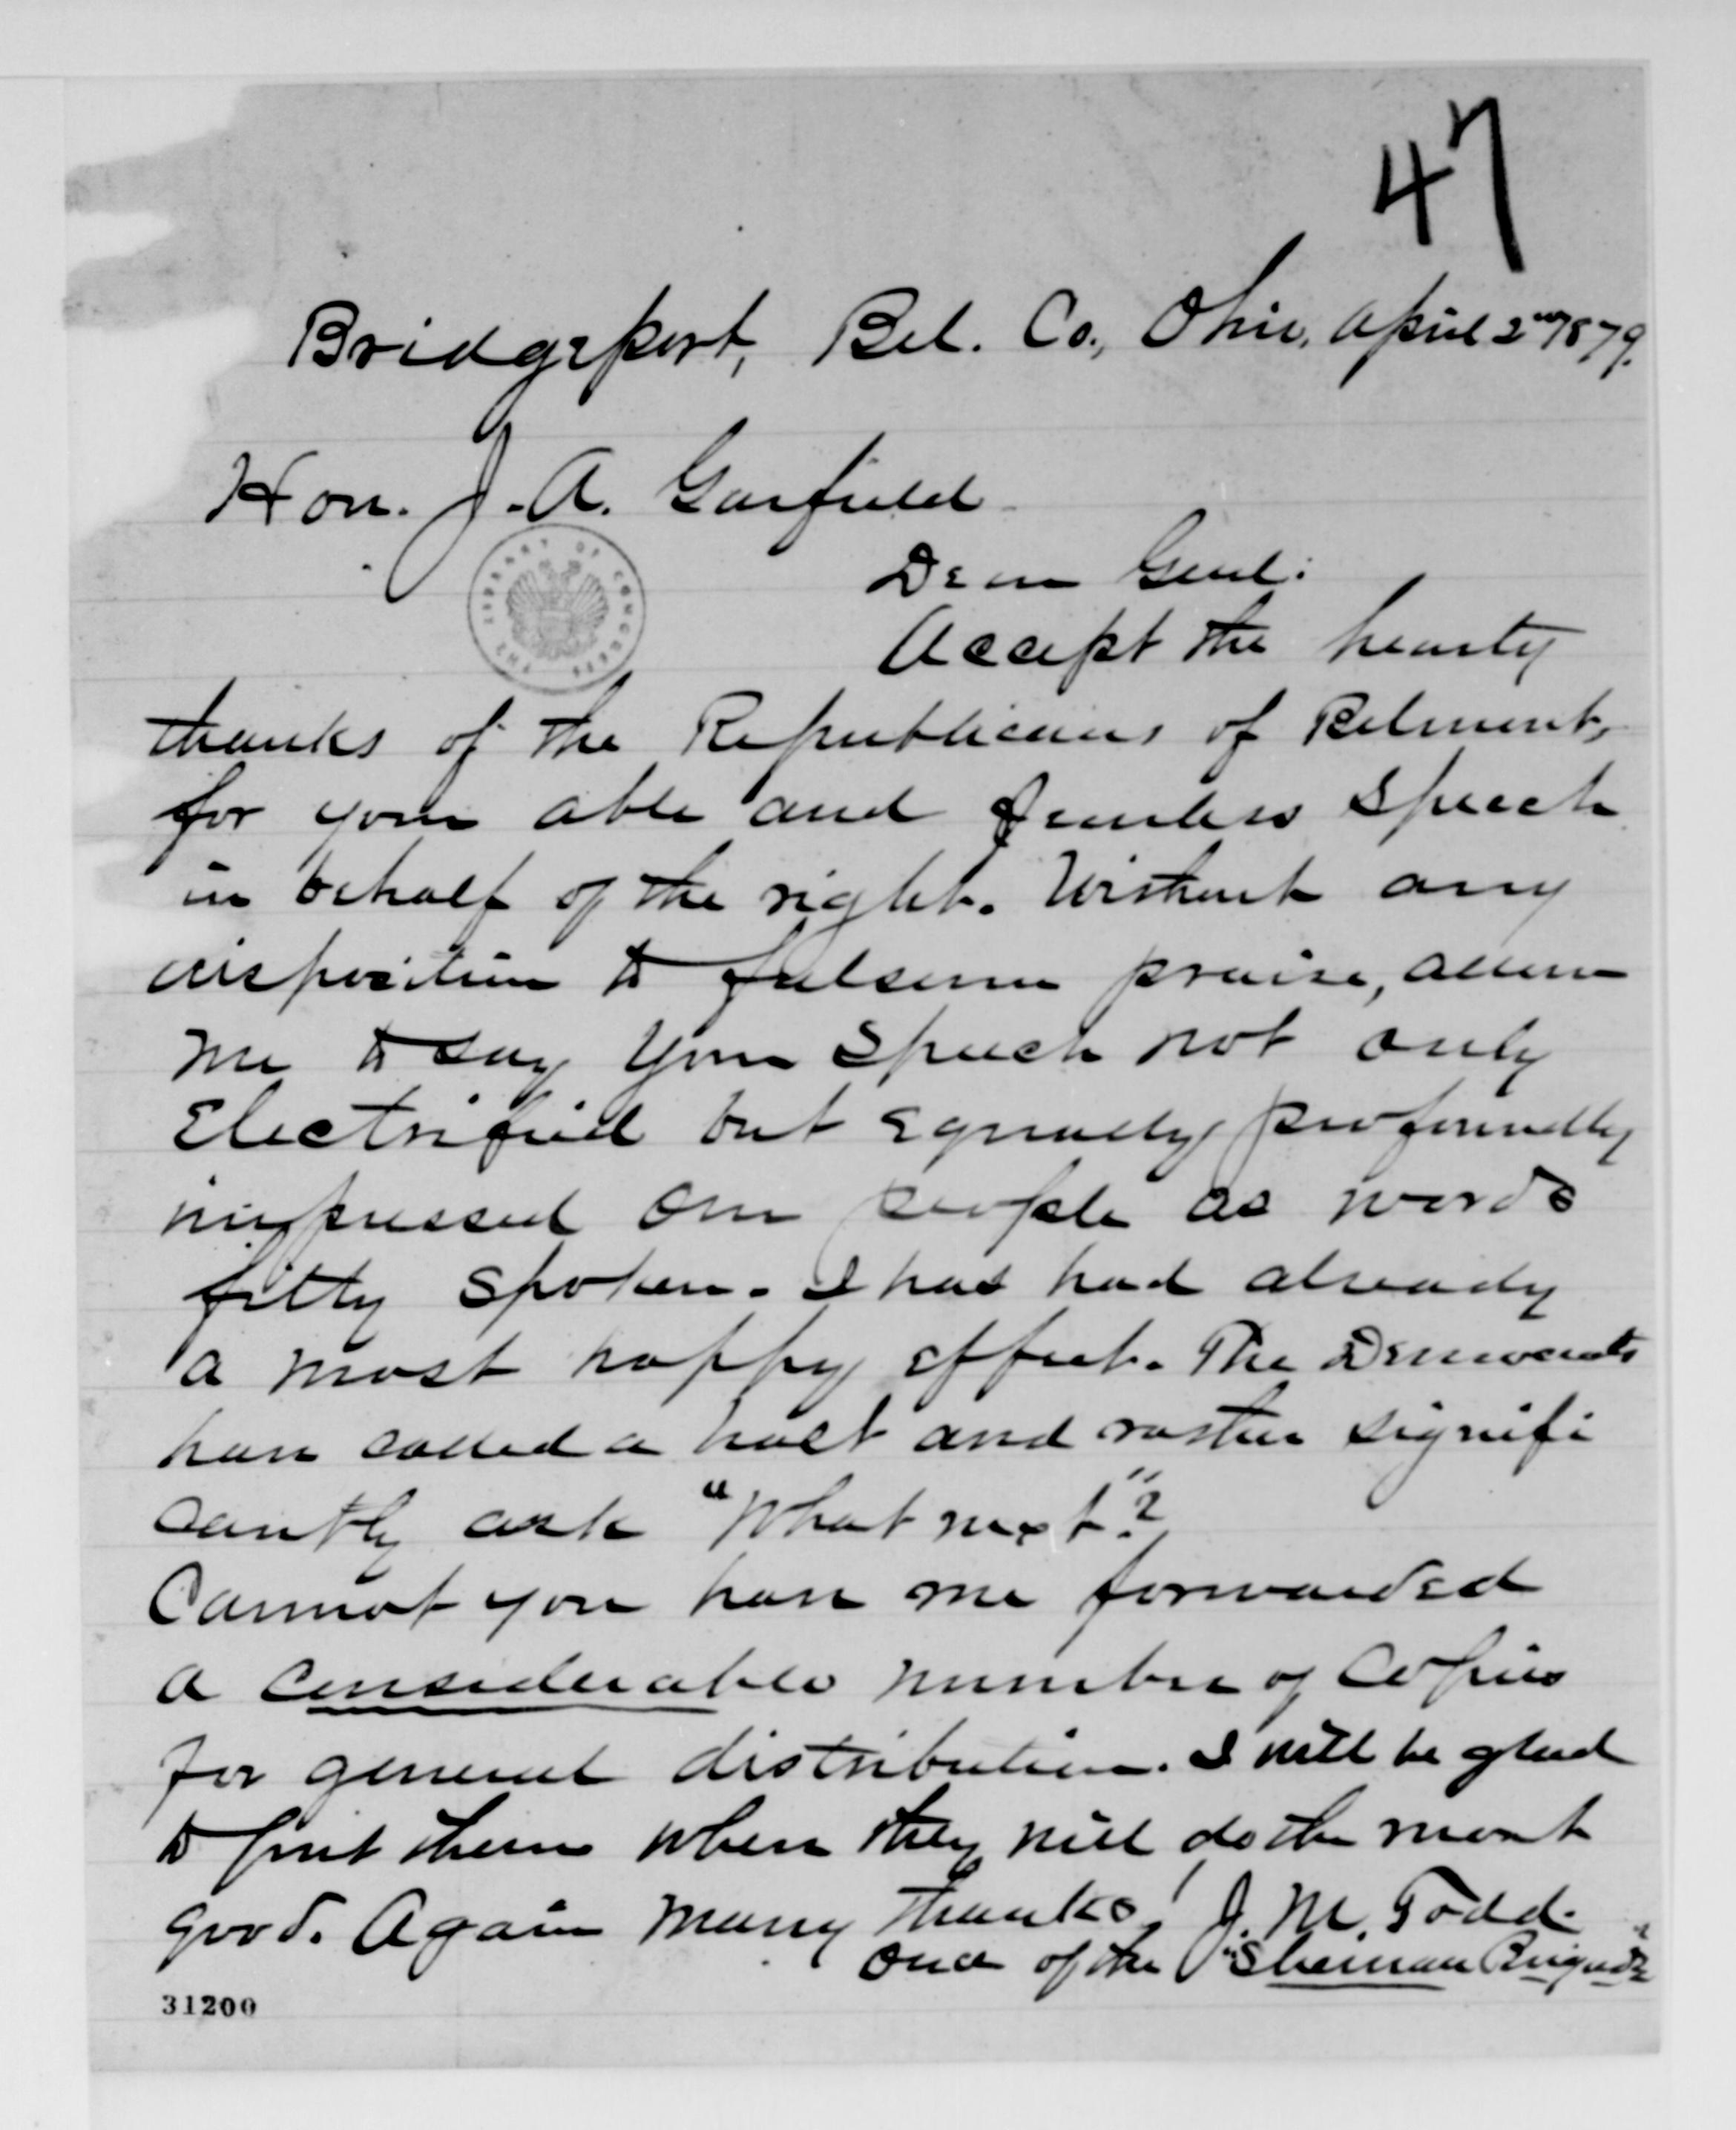 47
Bridgeport, Bel. Co., Ohio, April 2nd 1879.
Hon. J. A. Garfield
THE LIBRARY OF CONGRESS
Dear Genl:
Accept the hearty
thanks of the Republicans of Belmont,
for your able and fearless speech
in behalf of the right. Without any
disposition to fulsome praise, allow
me to say your speech not only
Electrified but equally profoundly
impressed our people as words
fitly spoken. I has had already
a most happy effect. The Democrats
have called a halt and rather signifi
cantly ask "What next"?
Cannot you have me forwarded
a considerable number of copies
for general distribution. I will be glad
to put them when they will do the most
good. Again many thanks! J. M. Todd.
One of the "Sherman Brigade"
31200